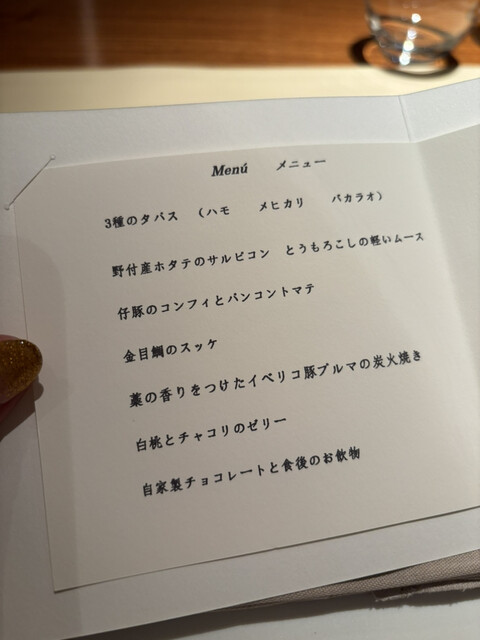 Menú　　メニュー
3種のタパス　（ハモ　　メヒカリ　　バカラオ）
野付産ホタテのサルピコン　とうもろこしの軽いムース
仔豚のコンフィとパンコントマテ
金目鯛のスッケ
藁の香りをつけたイベリコ豚プルマの炭火焼き
白桃とチャコリのゼリー
自家製チョコレートと食後のお飲物